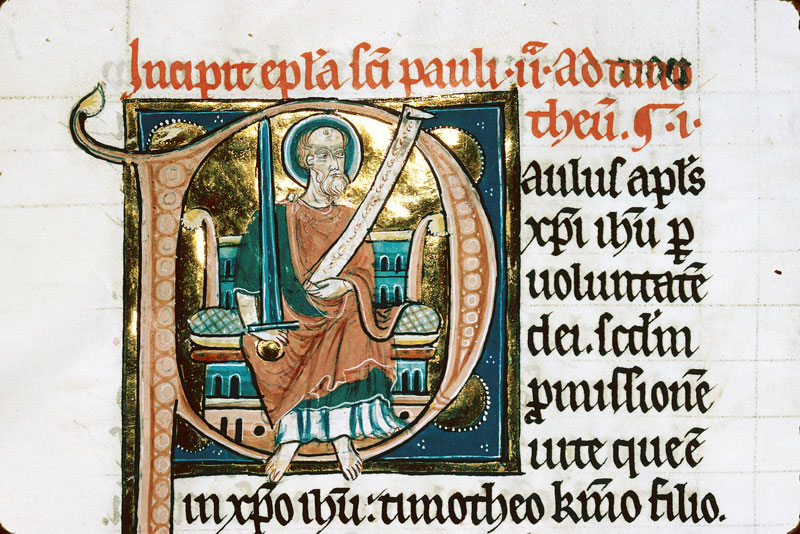 Incipit epl̃a sc̃i pauli·iiᷓ·Ad timo
theũ.¶·i·
Paulus apl̃s
xp̃i ih̃u ꝑ
uoluntatẽ
dei. scd̃m
ꝓmissionẽ
uite que ẽ
in xp̃o ih̃u: timotheo km̃o filio.